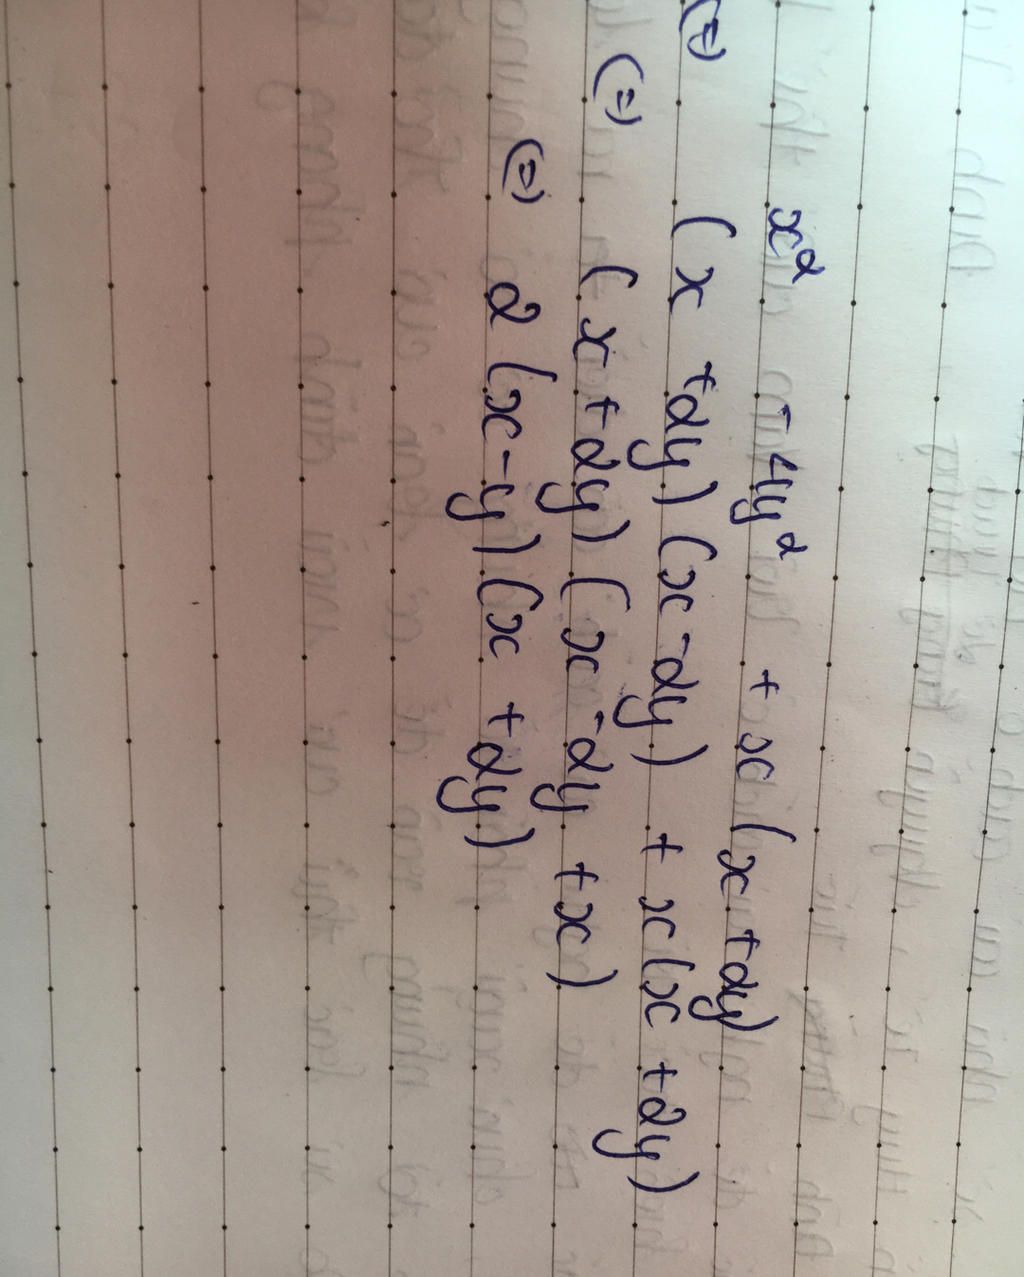 x² - 4y² + x(x + 2y)
(=) (x + 2y) (x - 2y) + x(x + 2y)
(=) (x + 2y) (x - 2y + x)
(=) 2(x - y)(x + 2y)